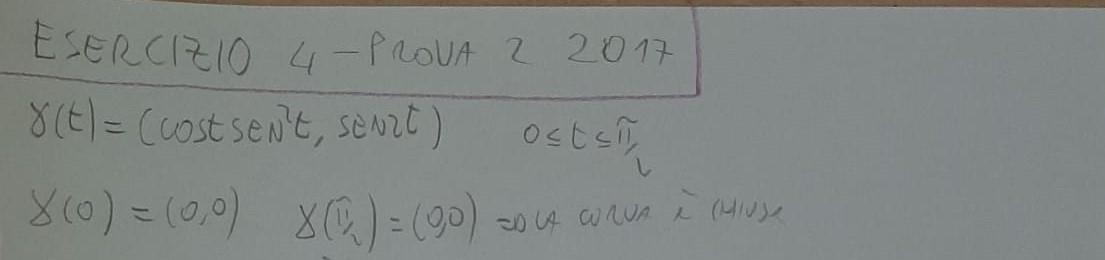 ESERCIZIO 4 - PROVA 2 2017
γ(t) = (cost sen²t, sen2t) 0 ≤ t ≤ π/2
γ(0) = (0,0) γ(π/2) = (0,0) => LA CURVA È CHIUSA